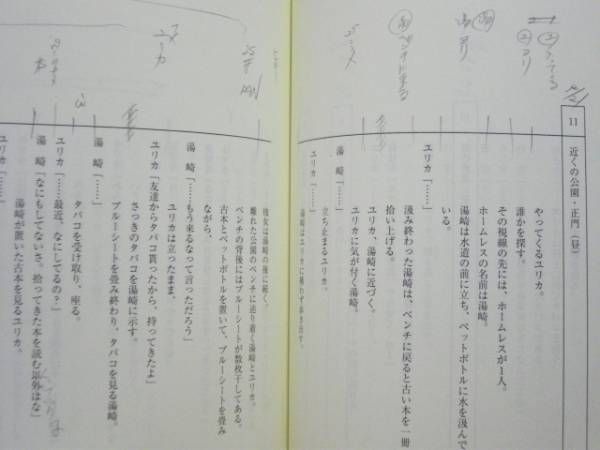 11
近くの公園・正門（昼）
やってくるユリカ。
誰かを探す。
その視線の先には、ホームレスが1人。
ホームレスの名前は湯崎。
湯崎は水道の前に立ち、ペットボトルに水を汲んで
いる。
ユリカ「……」
汲み終わった湯崎は、ベンチに戻ると古い本を一冊
拾い上げる。
ユリカ、湯崎に近づく。
ユリカに気が付く湯崎。
湯　崎「……」
立ち止まるユリカ。
ユリカ「……」
湯崎はユリカに構わず歩き出す。
彼女は湯崎の後に続く。
離れた公園のベンチに辿り着く湯崎とユリカ。
ベンチの背後にはブルーシートが数枚干してある。
古本とペットボトルを置いて、ブルーシートを畳み
ながら、
湯　崎「……もう来るなって言っただろう」
ユリカは立ったまま、
ユリカ「友達からタバコ貰ったから、持ってきたよ」
さっきのタバコを湯崎に示す。
ブルーシートを畳み終わり、タバコを見る湯崎。
湯　崎「……」
タバコを受け取り、座る。
ユリカ「……最近、なにしてるの？」
湯　崎「なにもしてないさ。拾ってきた本を読む以外はな」
湯崎が置いた古本を見るユリカ。
ユリカ「……」